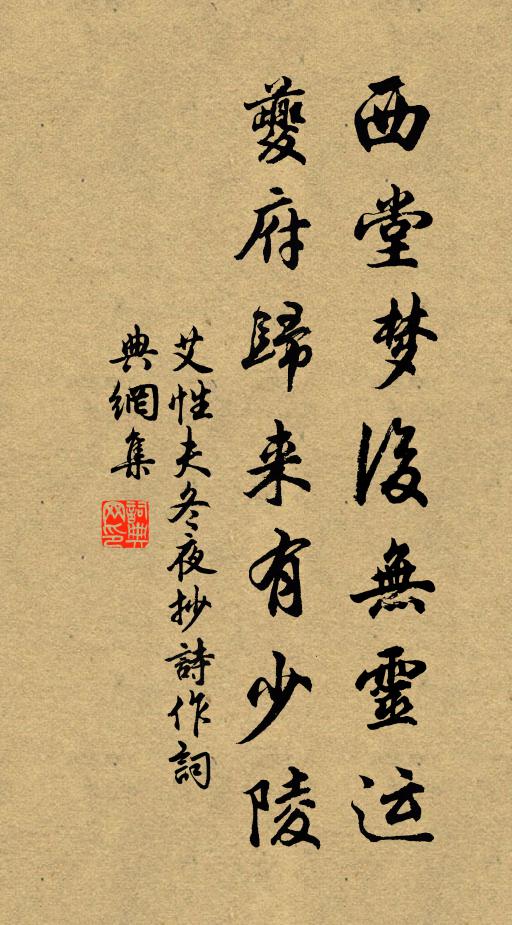 西堂梦後無靈运
夔府歸来有少陵
艾性夫冬夜抄詩作詞
典網集
詞典
网印